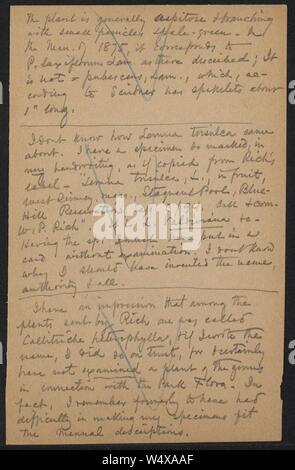 The plant is generally aspitose & branching
with small panicles & pale-green. In
the Man. of 1878, it corresponds to
P. laxiflorum Lam as there described; It
is not = pubescens, Lam., which, ac-
cording to Scribner has spikelets about
1" long.
I don't know how Lemna trisulca came
about. I have a specimen so marked, in
my handwriting, as if copied from Rich's
label – "Lemna trisulca, L., in fruit,
West Quincy, Mass., Pool, Blue-
Hill
W. P. Rich"
having the put in a
card without examination. I don't know
why I should have invented the name,
authority & all.
I have an impression that among the
plants sent by Rich one was called
Callitriche heterophylla, & if I wrote the
name, I did so on trust, for I certainly
have not examined a plant of the genus
in connection with the Park Flora. In
fact, I remember formerly to have had
difficulty in making my specimens fit
the Manual descriptions.
alamy
W4XAAF